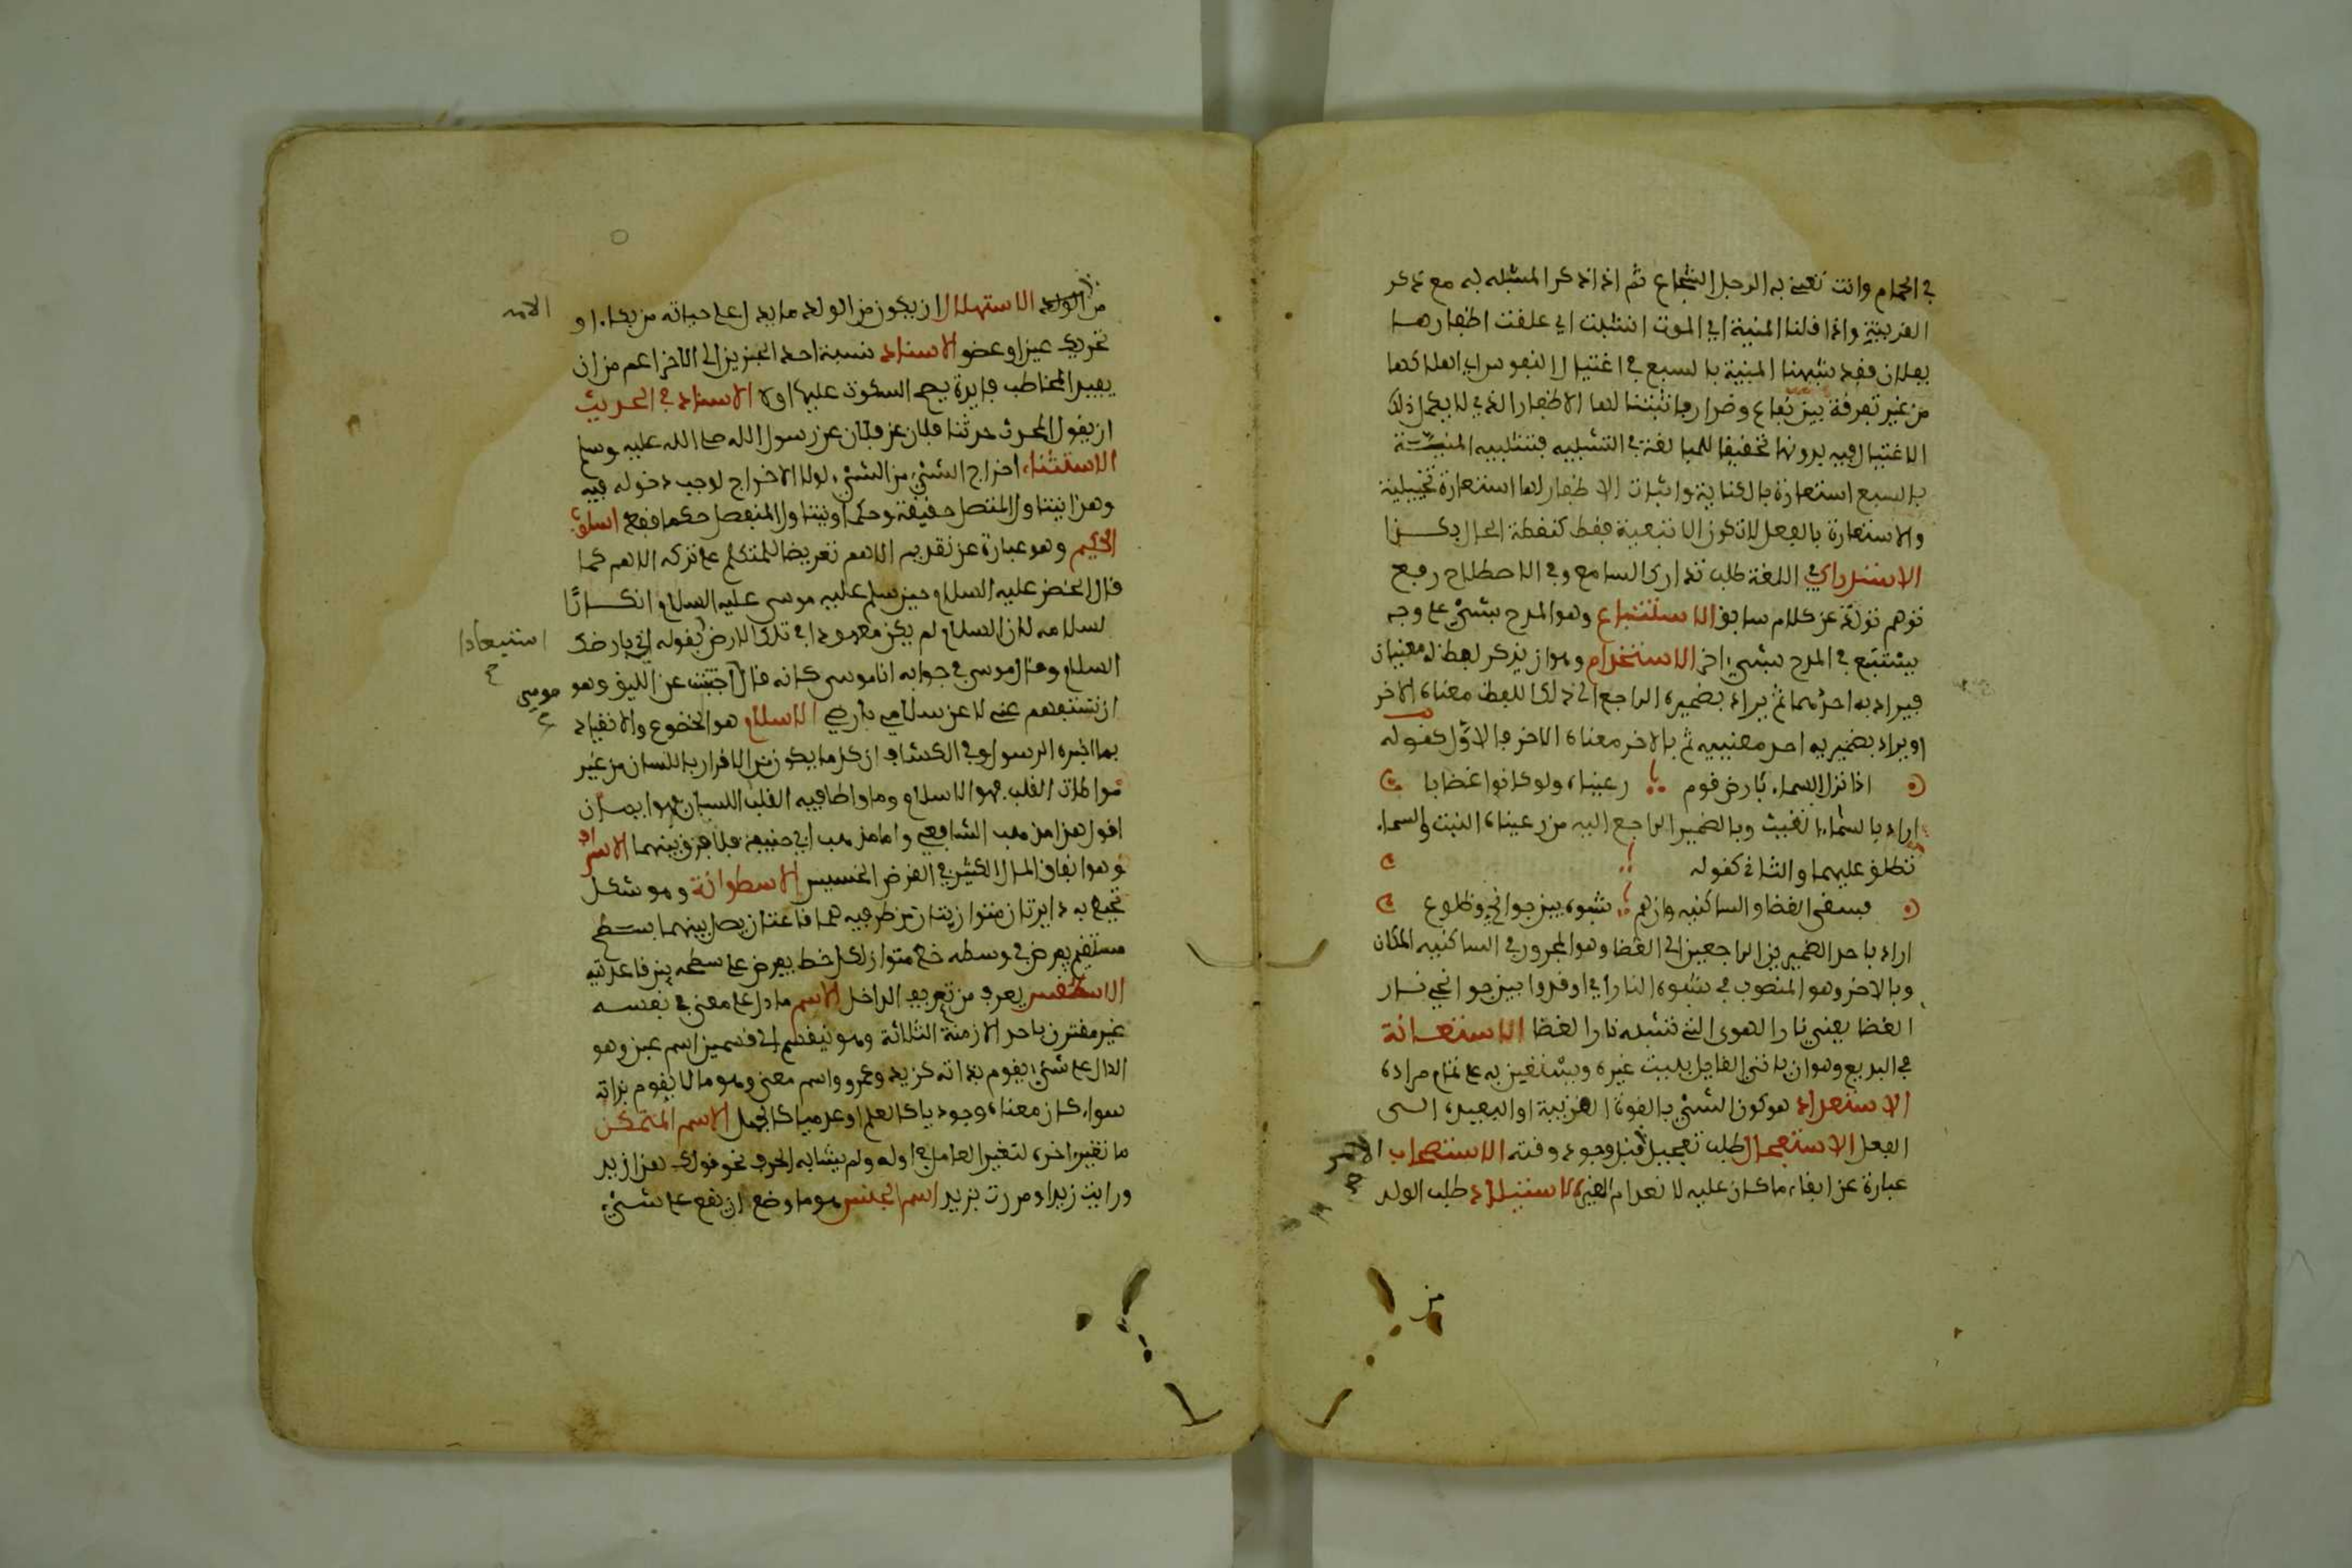 في الحمام وانت تعني به الرجل الشجاع ثم اذا ذكر المشبه به مع ذكر
القرينة واذا قلنا المنية اي الموت انشبت اي علقت اظفارها
بفلان فقد شبهنا المنية بالسبع في اغتيال النفوس اي اهلاكها
من غير تفرقة بين نفاع وضرار فاثبتنا لها الاظفار الذي لا يكمل ذلك
الاغتيال فيه بدونها تحقيقا للمبالغة في التشبيه فتشبيه المنيــة
بالسبع استعارة بالكناية واثبات الاظفار لها استعارة تخييلية
والاستعارة بالفعل لا تكون الا تبعية فقط كنطقة الحال بكــذا
الاستدراك في اللغة طلب تدارك السامع وفي الاصطلاح رفع
توهم تولد عن كلام سابق الاستتباع وهو المدح بشيء على وجه
يستتبع في المدح بشيء اخر الاستخدام وهو ان يذكر لفظ له معنيان
فيراد به احدهما ثم يراد بضميره الراجع الى ذلك اللفظ معناه الاخر
او يراد بضميريه احد معنييه ثم بالاخر معناه الاخر فالاول كقوله
اذا نزل السماء بارض قوم رعيناه ولو كانوا غضابا
اراد بالسماء الغيث وبالضمير الراجع اليه من رعيناه النبت والسماء
تطلق عليهما والثاني كقوله
فسقى الغضا والساكنيه وان هم شبوه بين جوانحي وظلوع
اراد باحد الضميرين الراجعين الى الغضا وهو المجرور في الساكنيه المكان
وبالاخر وهو المنصوب في شبوه النار اي اوقدوا بين جوانحي نــار
الغضا يعني نار الهوى التي تشبه نار الغضا الاستعــانة
في البديع وهو ان ياتي القايل ببيت غيره ويستعين به على تمام مراده
الاستعداد هو كون الشيء بالقوة القريبة او البعيدة الــى
الفعل الاستعجال طلب تعجيل الامر قبل وجود وقته الاستصحاب
عبارة عن ابقاء ما كان عليه لانعدام المغير الاستيلاد طلب الولد
من
من الامه الاستهلال ان يكون من الولد ما يدل على حياته من بكاء او
تحريك عين او عضو الاسناد نسبة احد الجزيين الى الاخر اعم من ان
يفيد المخاطب فايدة يصح السكوت عليها او لا الاسناد في الحديث
ان يقول المحدث حدثنا فلان عن فلان عن رسول الله صلى الله عليه وسلم
الاستثناء اخراج الشيء من الشيء لولا الاخراج لوجب دخوله فيه
وهذا يتناول المتصل حقيقة وحكما ويتناول المنفصل حكما فقط اسلوب
الحكيم وهو عبارة عن تقديم الاهم تعريضا للمتكلم على تركه الاهم كما
قال الخضر عليه السلام حين سلم عليه موسى عليه السلام انكــارًا
لسلامه لان السلام لم يكن معهودا في تلك الارض بقوله اني بارضك
استبعادا
السلام وقال موسى في جوابه انا موسى كانه قال اجبت عن اللايق وهو
موسى
ان تستفهم عني لا عن سلامي بارضي الاسلام هو الخضوع والانقياد
بما اخبره الرسول وفي الكشاف ان كل ما يكون من الاقرار باللسان من غير
مواطاة القلب فهو الاسلام وما واطا فيه القلب اللسان فهو ايمــان
اقول هذا مذهب الشافعي واما مذهب ابي حنيفة فلا فرق بينهما الاسراف
وهو انفاق المال الكثير في الغرض الخسيس الاسطوانة وهو شكل
تحيط به دايرتان متوازيتان من طرفيه هما قاعدتان يصل بينهما ســطح
مستقيم يعرض في وسطه خط متواز لكل خط يعرض على سطحه بين قاعدتيه
الاسطقس يعرف من تعريف الداخل الاسم ما دل على معنى في نفسه
غير مقترن باحد الازمنة الثلاثة وهو ينقسم الى قسمين اسم عين وهو
الدال على شيء يقوم بذاته كزيد وعمرو واسم معنى وهو ما لا يقوم بذاته
سواء كان معناه وجوديا كالعلم او عدميا كالجهل الاسم المتمكن
ما تغير اخره لتغير العامل في اوله ولم يشابه الحرف نحو قولك هذا زيد
ورايت زيدا ومررت بزيد اسم الجنس هو ما وضع ان يقع على شيء